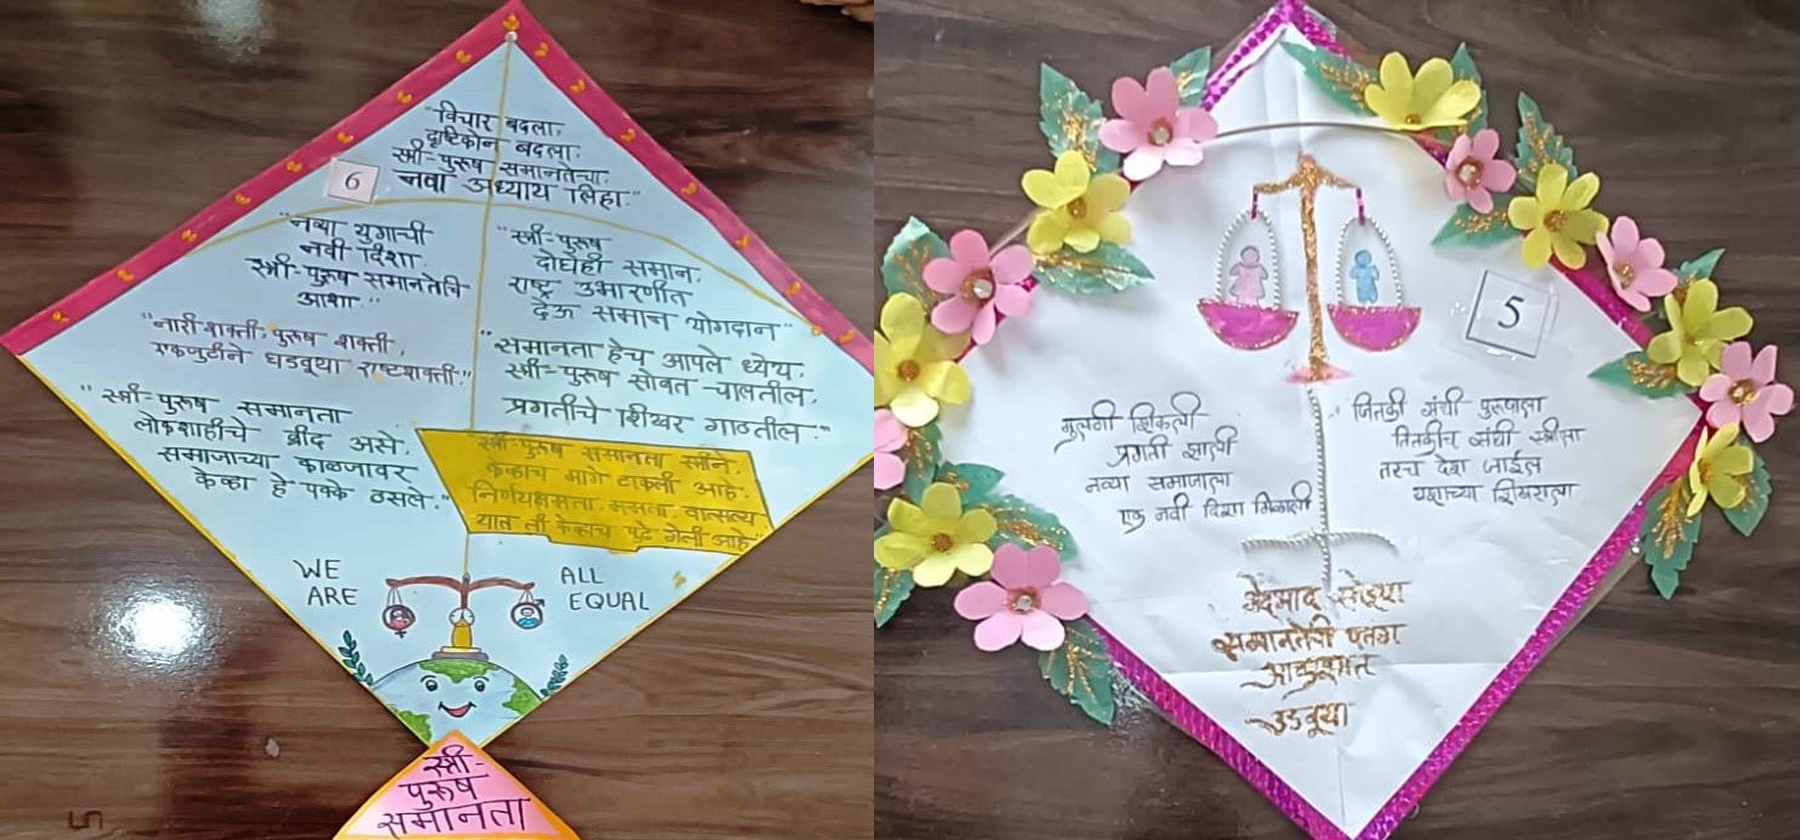 "विचार बदला,
दृष्टिकोन बदला,
स्त्री-पुरुष समानतेचा,
नवा अध्याय लिहा."
6
"नव्या युगाची
नवी दिशा
स्त्री-पुरुष समानतेचि
आशा"
"स्त्री-पुरुष
दोघेही समान,
राष्ट्र उभारणीत
देऊ समान योगदान"
"नारी शक्ती, पुरुष शक्ती,
एकजुटीने घडवूया राष्ट्रशक्ती."
"समानता हेच आपले ध्येय,
स्त्री-पुरुष सोबत चालतील,
प्रगतीचे शिखर गाठतील."
"स्त्री-पुरुष समानता
लोकशाहीचे ब्रीद असे,
समाजाच्या काळजावर
केव्हा हे पक्के ठसले."
"स्त्री-पुरुष समानता स्त्रीने,
केव्हाच मागे टाकली आहे.
निर्णयक्षमता, ममता, वात्सल्य
यात ती केव्हाच पुढे गेली आहे"
WE
ARE
ALL
EQUAL
स्त्री-
पुरुष
समानता
5
मुलगी शिकली
प्रगती झाली
नव्या समाजाला
एक नवी दिशा मिळाली
"जितकी संधी पुरुषाला
तितकीच संधी स्त्रीला
तरच देश जाईल
यशाच्या शिखराला
भेदभाव सोडूया
समानतेची पतंग
आकाशात
उडवूया